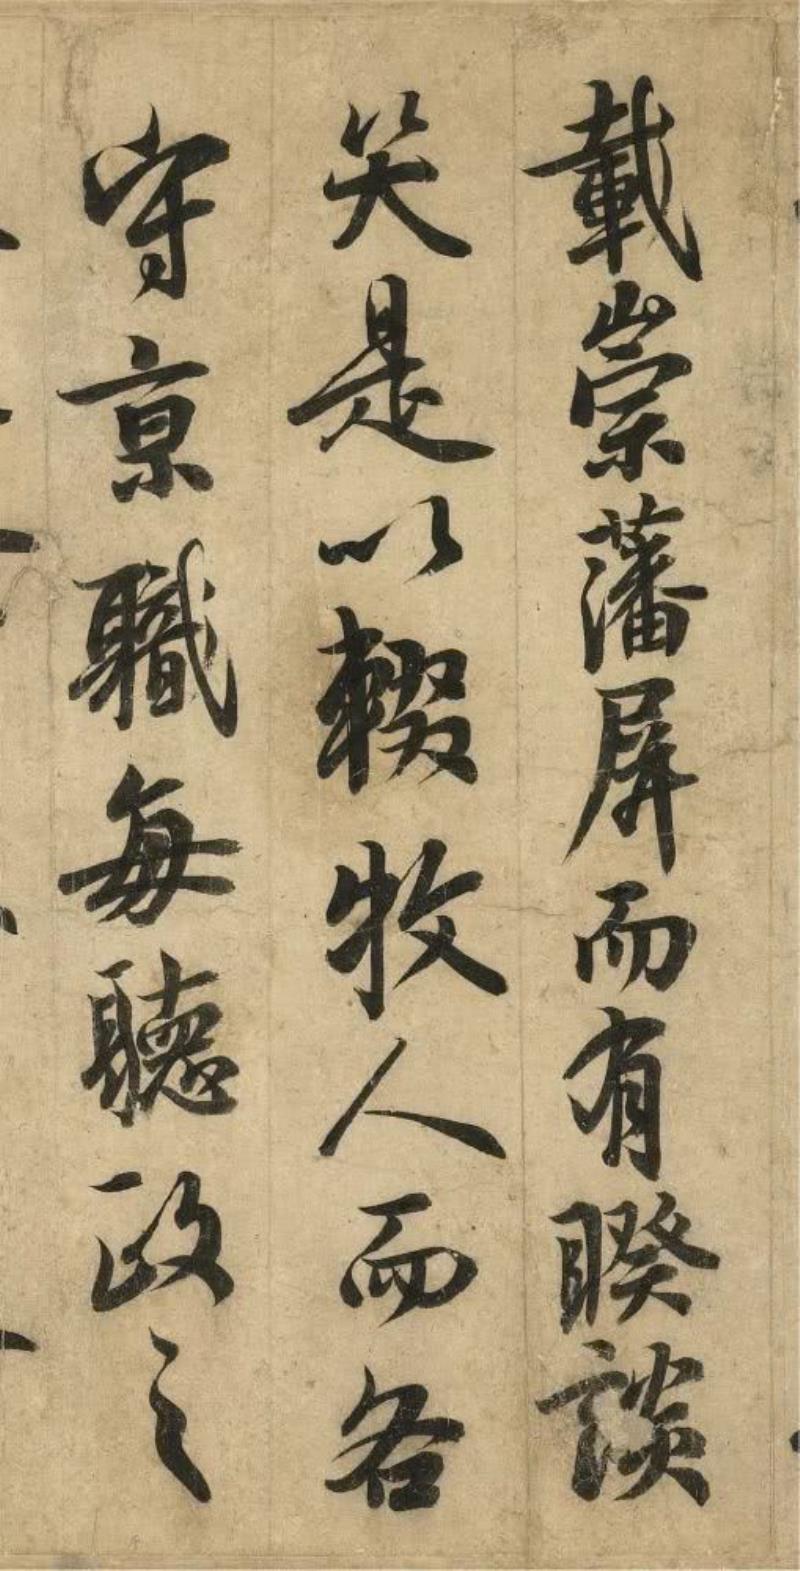 載崇藩屏而有睽談
笑是以輟牧人而各
守京職每聽政之